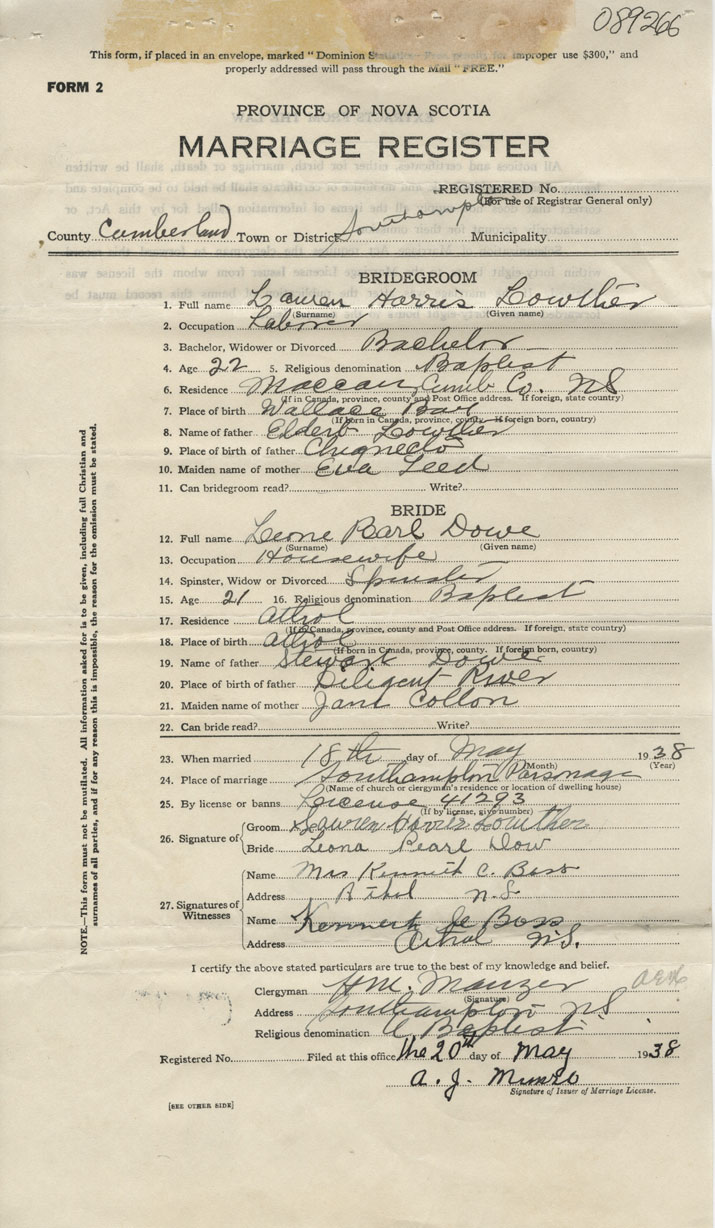 089266
This form, if placed in an envelope, marked "Dominion Statistics— Free penalty for improper use $300," and
properly addressed will pass through the Mail "FREE."
FORM 2
PROVINCE OF NOVA SCOTIA
MARRIAGE REGISTER
REGISTERED No.
(For use of Registrar General only)
County Cumberland Town or District Southampton Municipality
BRIDEGROOM
1. Full name Lauren Harris Lowther
(Surname) (Given name)
2. Occupation Laborer
3. Bachelor, Widower or Divorced Bachelor
4. Age 22 5. Religious denomination Baptist
6. Residence Maccan, Cumb Co. NS
(If in Canada, province, county and Post Office address. If foreign, state country)
7. Place of birth Wallace Bay
(If born in Canada, province, county. If foreign born, country)
8. Name of father Eldert Lowther
9. Place of birth of father Chignecto
10. Maiden name of mother Eva Leed
11. Can bridegroom read? Write?
BRIDE
12. Full name Leone Pearl Dowe
(Surname) (Given name)
13. Occupation Housewife
14. Spinster, Widow or Divorced Spinster
15. Age 21 16. Religious denomination Baptist
17. Residence Athol
(If in Canada, province, county and Post Office address. If foreign, state country)
18. Place of birth Athol
(If born in Canada, province, county. If foreign born, country)
19. Name of father Stewart Dowe
20. Place of birth of father Diligent River
21. Maiden name of mother Jane Collon
22. Can bride read? Write?
23. When married 18th day of May 1938
(Month) (Year)
24. Place of marriage Southampton Parsonage
(Name of church or clergyman's residence or location of dwelling house)
25. By license or banns License 41293
(If by license, give number)
26. Signature of
Groom Lauren Harris Lowther
Bride Leona Pearl Dow
27. Signatures of Witnesses
Name Mrs Kenneth C. Boss
Address Athol N.S.
Name Kenneth Boss
Address Athol N.S.
I certify the above stated particulars are true to the best of my knowledge and belief.
Clergyman H.M. Manzer
(Signature)
Address Southampton NS
Religious denomination Baptist
Registered No. Filed at this office the 20th day of May 1938
A. J. Munro
Signature of Issuer of Marriage License.
[SEE OTHER SIDE]
NOTE.—This form must not be mutilated. All information asked for is to be given, including full Christian and
surnames of all parties, and if for any reason this is impossible, the reason for the omission must be stated.